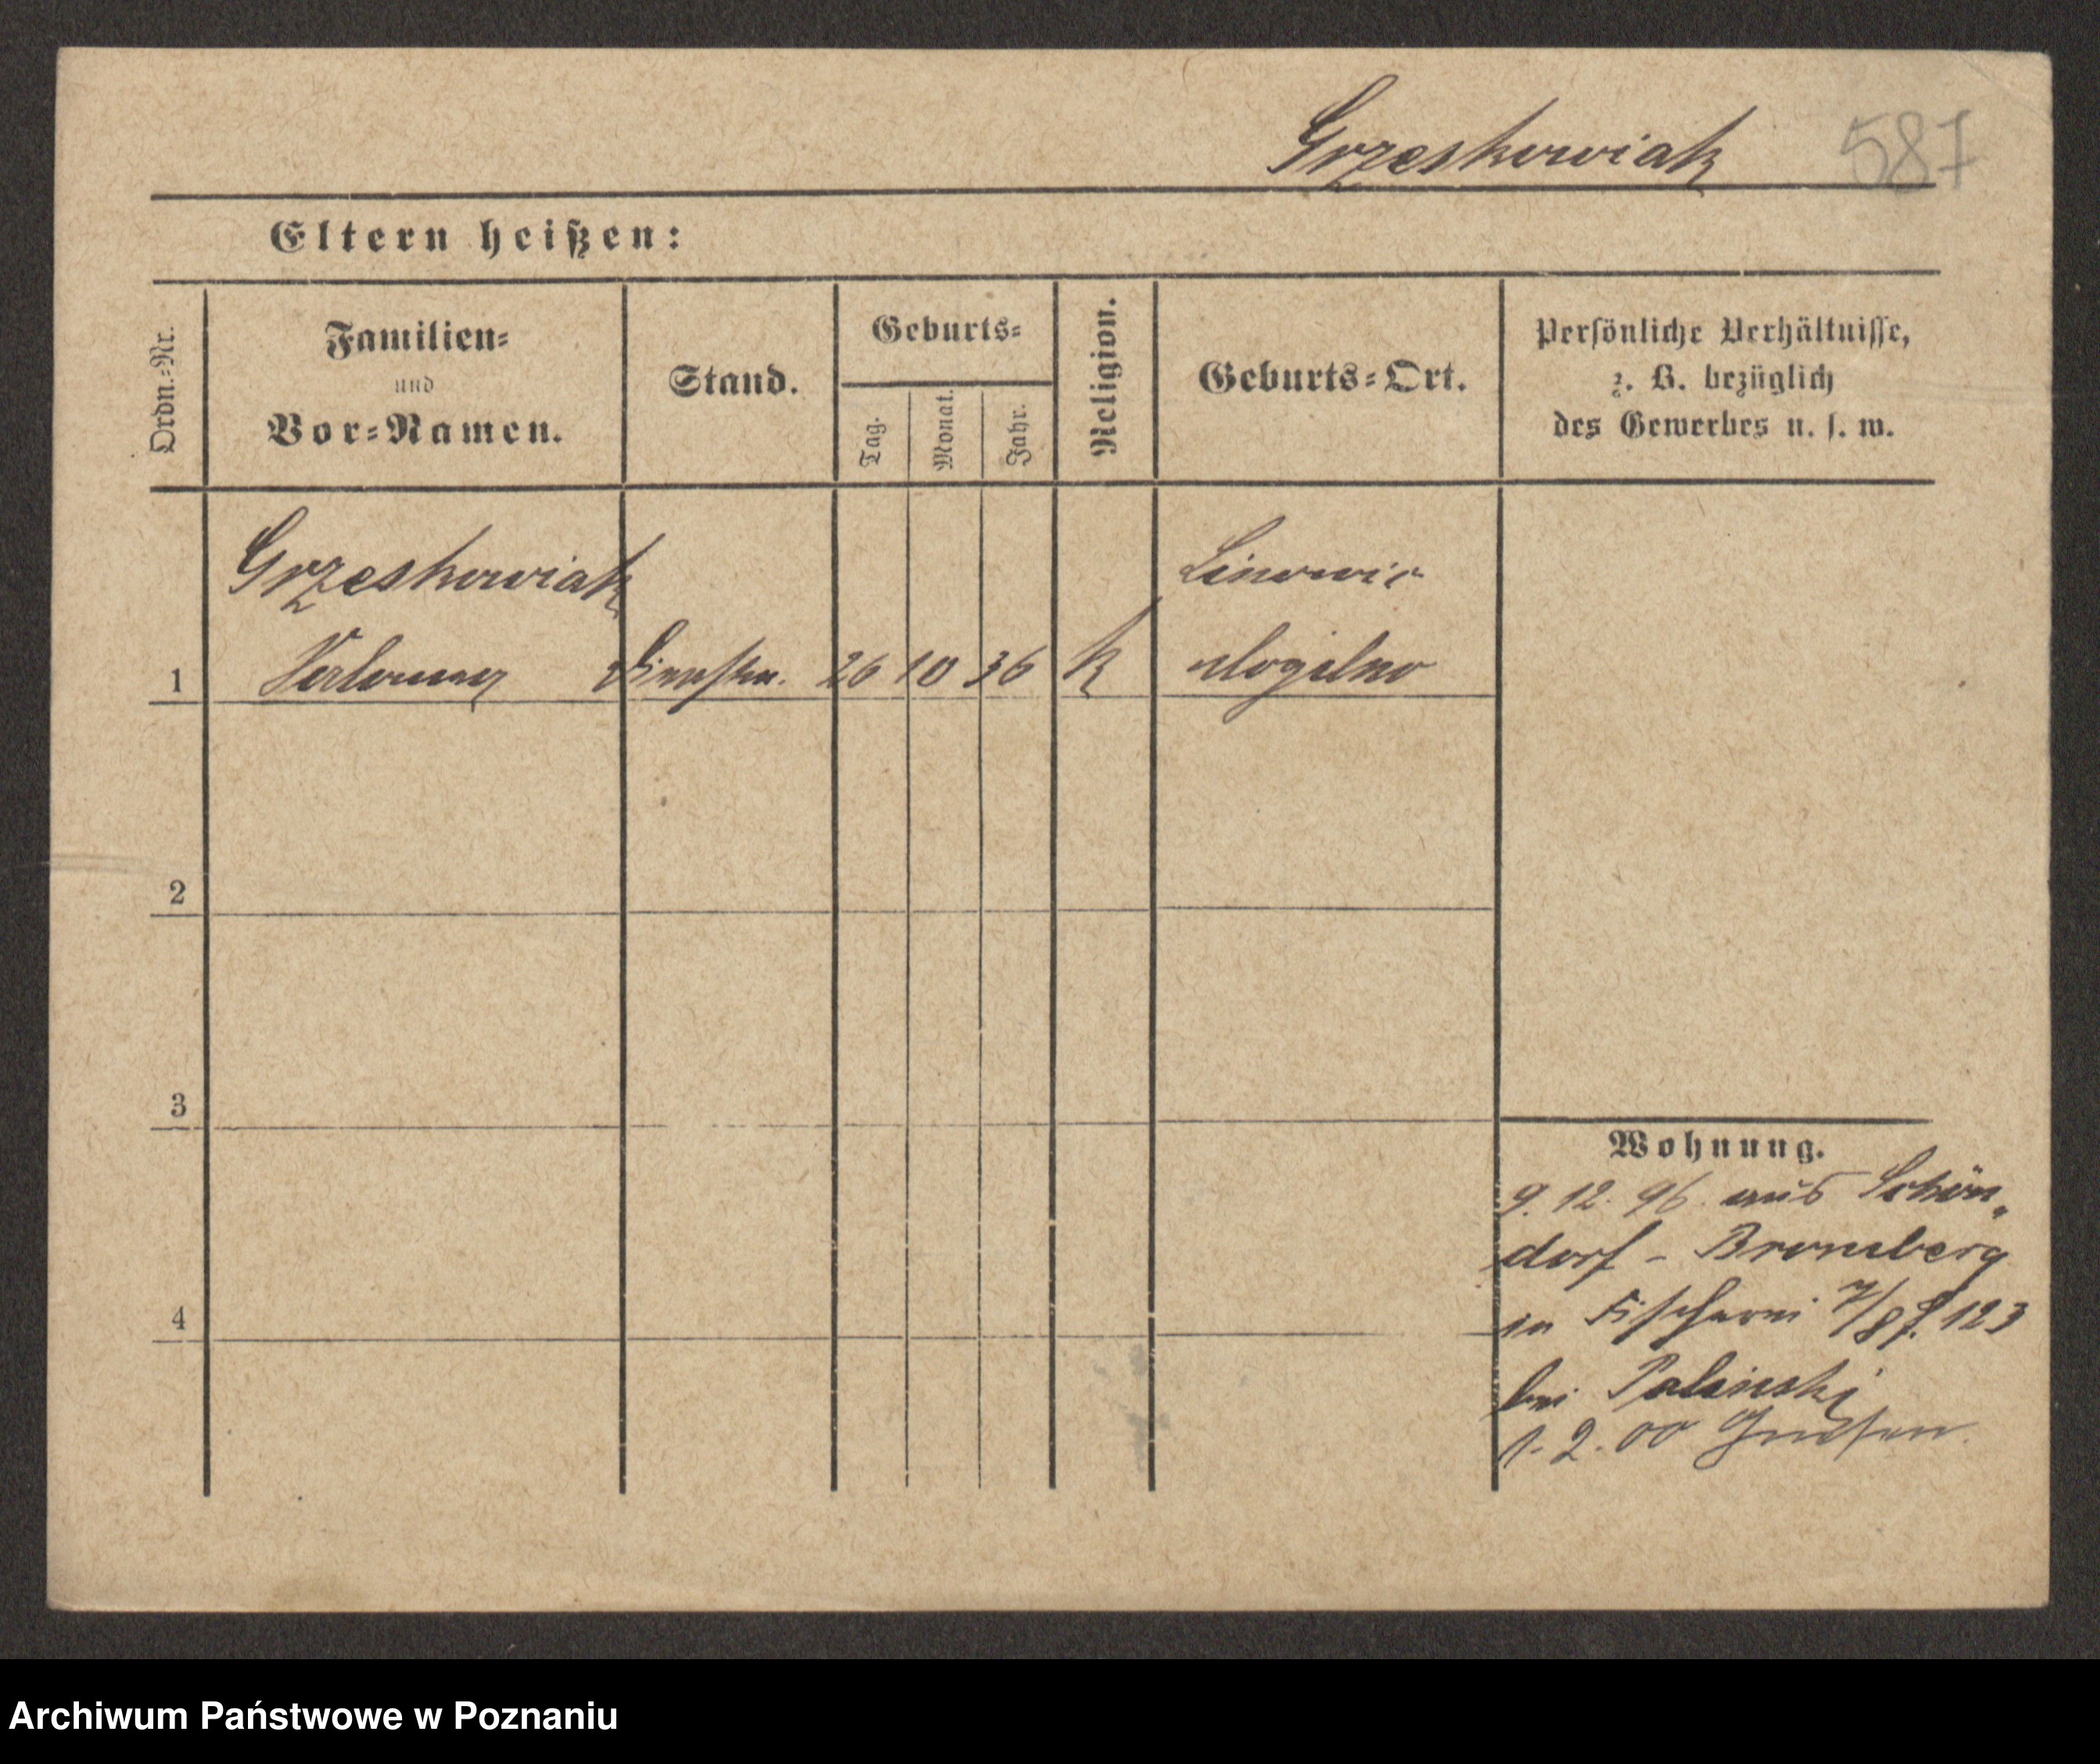 Grzeskowiak 587
Eltern heißen:
Ordn.-Nr.
Familien-
und
Vor-Namen.
Stand.
Geburts-
Tag.
Monat.
Jahr.
Religion.
Geburts-Ort.
Persönliche Verhältnisse,
z. B. bezüglich
des Gewerbes u. s. w.
Grzeskowiak
1 26 10 36 k Mogilno
2
3
4
Wohnung.
9. 12. 96. aus Schön„
dorf - Bromberg
in Fischerei 7/8 123
bei Palinski
1. 2. 00 Gnesen.
Archiwum Państwowe w Poznaniu